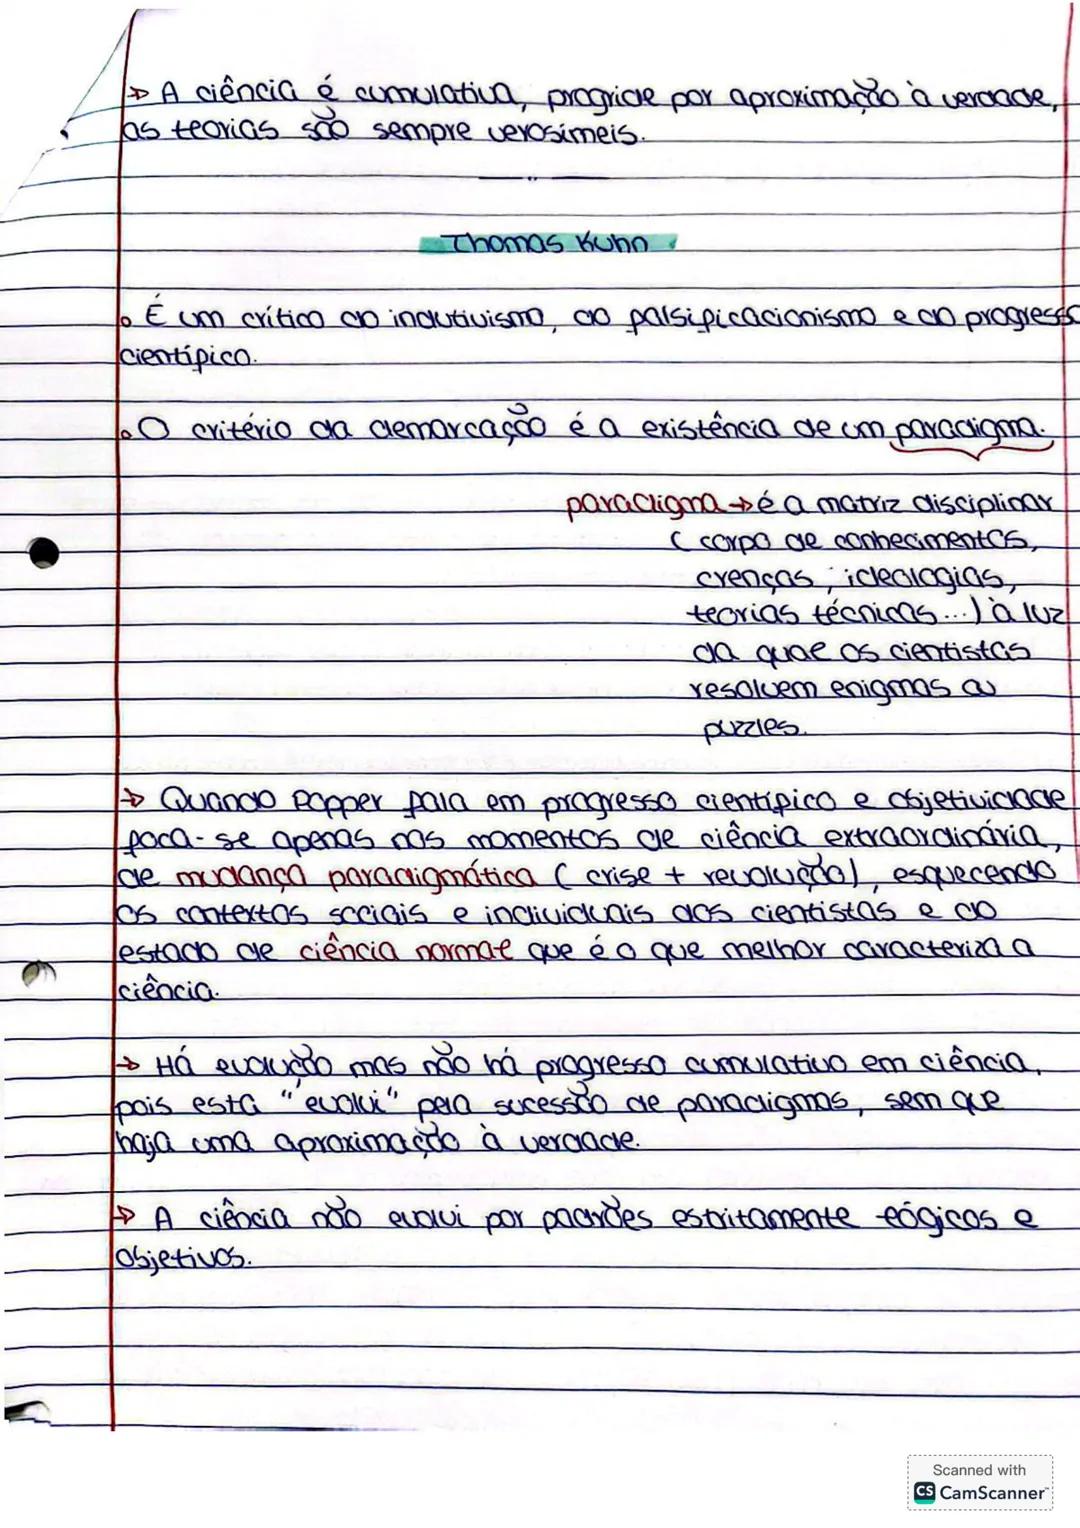 → A ciência é cumulativa, progride por aproximação à verdade,
as teorias são sempre verosímeis.
Thomas Kuhn
• É um crítico ao indutivismo, ao falsificacionismo e ao progresso
científico.
• O critério da demarcação é a existência de um paradigma.
paradigma → é a matriz disciplinar
( corpo de conhecimentos,
crenças, ideologias,
teorias técnicas...) à luz
da qual os cientistas
resolvem enigmas ou
puzzles.
→ Quando Popper fala em progresso científico e objetividade
foca-se apenas nos momentos de ciência extraordinária,
de mudança paradigmática ( crise + revolução), esquecendo
os contextos sociais e individuais dos cientistas e do
estado de ciência normal que é o que melhor caracteriza a
ciência.
→ Há evolução mas não há progresso cumulativo em ciência,
pois esta "evolui" pela sucessão de paradigmas, sem que
haja uma aproximação à verdade.
→ A ciência não evolui por padrões estritamente lógicos e
objetivos.
Scanned with
CS CamScanner